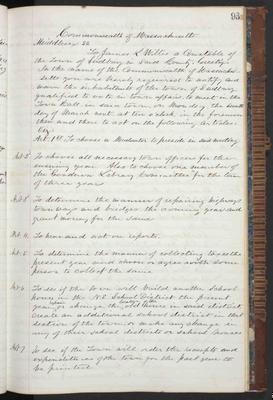 93
Commonwealth of Massachusetts
Middlesex ss
To James L Willis a Constable of
the Town of Sudbury in said County, Greeting
In the name of the Commonwealth of Massachu
setts you are hereby required to notify and
warn the inhabitants of the town of Sudbury
qualified to vote in town affairs to meet in the
Town Hall in said town on Monday the
day of March next at ten o'clock in the forenoon
then and there to act on the following Articles.
Viz:
Art. 1st To choose a Moderator to preside in said meeting
Art. 2 To choose all necessary town officers for the
ensuing year. Also to choose one member of
the Goodnow Library Committee for the term
of three years
Art 3 To determine the manner of repairing highways
townways and bridges the ensuing year and
grant money for the same
Art. 4 To hear and act on reports.
Art. 5 To determine the manner of collecting taxes the
present year and choose or agree with some
person to collect the same
Art 6 To see if the town will build another School
house in the N.E. School District the present
year, or change the old house in said district,
create an additional school district in that
section of the town or make any change in
any of their school districts or school houses
Art 7 To see if the Town will order the receipts and
expenditures of the town for the past year to
be printed